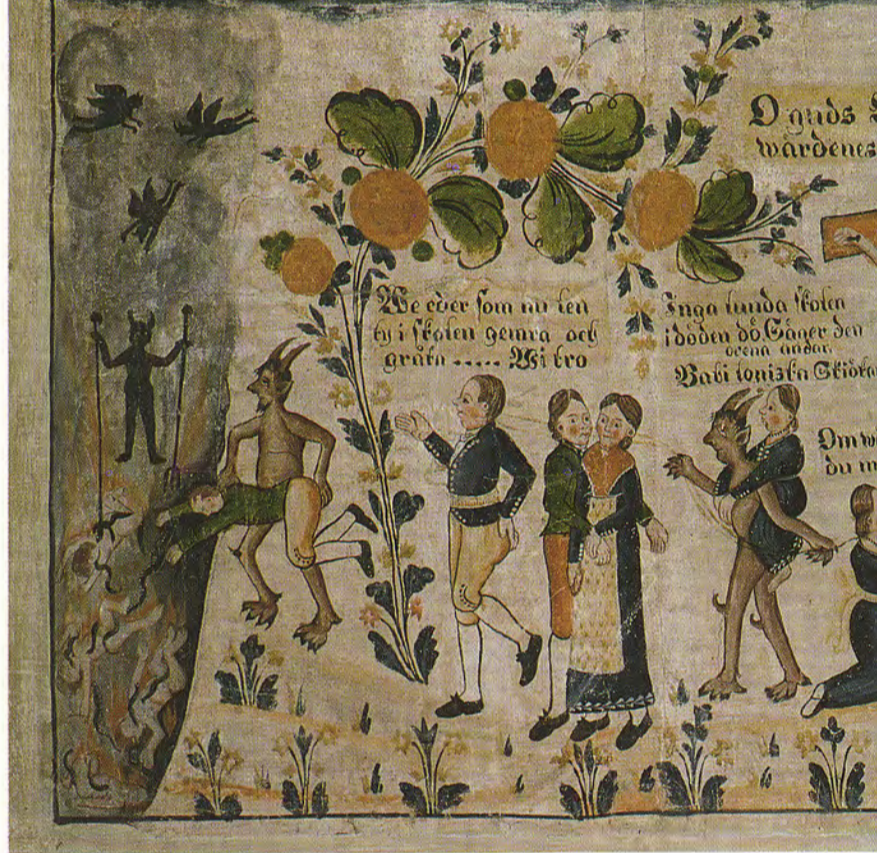 O guds
wärdenes
We eder som nu leen
ty i skolen gemra och
gråta ..... Wi tro
Inga lunda skolen
i döden dö. Säger den
orena andar.
Babi loniska Skiöka
Om
du